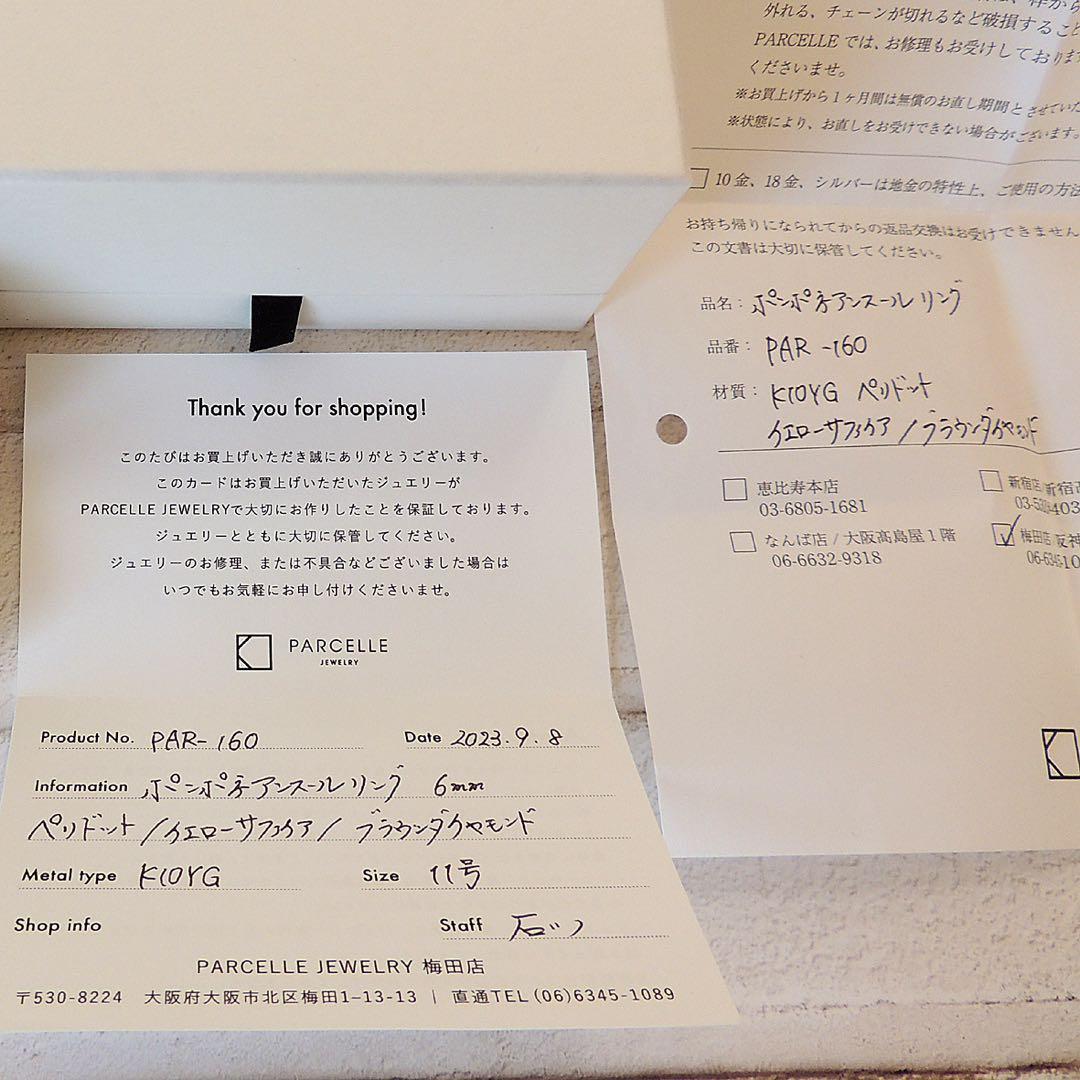 Thank you for shopping!
このたびはお買上げいただき誠にありがとうございます。
このカードはお買上げいただいたジュエリーが
PARCELLE JEWELRYで大切にお作りしたことを保証しております。
ジュエリーとともに大切に保管してください。
ジュエリーのお修理、または不具合などございました場合は
いつでもお気軽にお申し付けくださいませ。
PARCELLE
JEWELRY
Product No. PAR-160 Date 2023.9.8
Information ポンポネアンスールリング 6mm
ペリドット/イエローサファイア/ブラウンダイヤモンド
Metal type K10YG Size 11号
Shop info Staff
PARCELLE JEWELRY 梅田店
〒530-8224 大阪府大阪市北区梅田1-13-13 | 直通TEL(06)6345-1089
外れる、チェーンが切れるなど破損すること
PARCELLE では、お修理もお受けしております
くださいませ。
※お買上げから1ヶ月間は無償のお直し期間とさせていた
※状態により、お直しをお受けできない場合がございます。
10金、18金、シルバーは地金の特性上、ご使用の方法
お持ち帰りになられてからの返品交換はお受けできません
この文書は大切に保管してください。
品名：ポンポネアンスールリング
品番：PAR-160
材質：K10YG ペリドット
イエローサファイア/ブラウンダイヤモンド
恵比寿本店 新宿店/新宿高
03-6805-1681
なんば店/大阪高島屋1階 梅田店 阪神
06-6632-9318